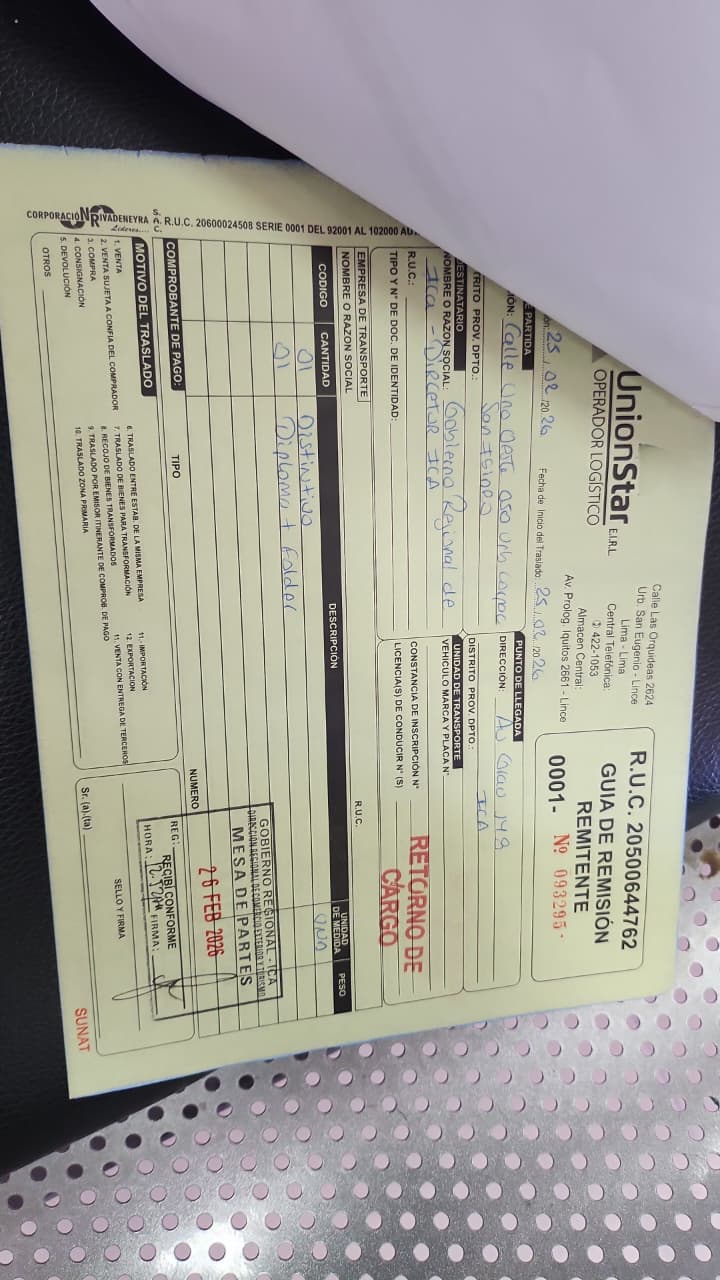 UnionStar E.I.R.L
OPERADOR LOGÍSTICO
Calle Las Orquideas 2624
Urb. San Eugenio - Lince
Lima - Lima
Central Telefónica:
422-1053
Almacen Central:
Av. Prolog. Iquitos 2661 - Lince
R.U.C. 20500644762
GUIA DE REMISIÓN
REMITENTE
0001- Nº 093295
25/02/2026 Fecha de Inicio del Traslado: 25/02/2026
PARTIDA
Calle Uno Oeste 050 Urb Corpac
TRITO PROV. DPTO.: San Isidro
PUNTO DE LLEGADA
DIRECCIÓN: Av Grau 148
DISTRITO PROV. DPTO.: ICA
DESTINATARIO
NOMBRE O RAZON SOCIAL: Gobierno Regional de
Ica - Dircetur ICA
R.U.C.:
TIPO Y N° DE DOC. DE IDENTIDAD:
UNIDAD DE TRANSPORTE
VEHICULO MARCA Y PLACA N°
CONSTANCIA DE INSCRIPCIÓN N°
LICENCIA(S) DE CONDUCIR N° (S)
RETORNO DE
CARGO
EMPRESA DE TRANSPORTE
NOMBRE O RAZON SOCIAL
R.U.C.
CODIGO CANTIDAD DESCRIPCIÓN UNIDAD DE MEDIDA PESO
01 Distintivo UND
01 Diploma + Folder
GOBIERNO REGIONAL - ICA
DIRECCIÓN REGIONAL DE COMERCIO EXTERIOR Y TURISMO
MESA DE PARTES
26 FEB 2026
REG:
RECIBI CONFORME
HORA: FIRMA:
COMPROBANTE DE PAGO: TIPO NUMERO
MOTIVO DEL TRASLADO
1. VENTA
2. VENTA SUJETA A CONFIA DEL COMPRADOR
3. COMPRA
4. CONSIGNACIÓN
5. DEVOLUCIÓN
6. TRASLADO ENTRE ESTAB. DE LA MISMA EMPRESA
7. TRASLADO DE BIENES PARA TRANSFORMACIÓN
8. RECOJO DE BIENES TRANSFORMADOS
9. TRASLADO POR EMISOR ITINERANTE DE COMPROB. DE PAGO
10. TRASLADO ZONA PRIMARIA
11. IMPORTACIÓN
12. EXPORTACION
11. VENTA CON ENTREGA DE TERCEROS
OTROS
SELLO Y FIRMA
Sr. (a),(ta)
SUNAT
CORPORACIÓN RIVADENEYRA S.A.C. R.U.C. 20600024508 SERIE 0001 DEL 92001 AL 102000
Líderes....